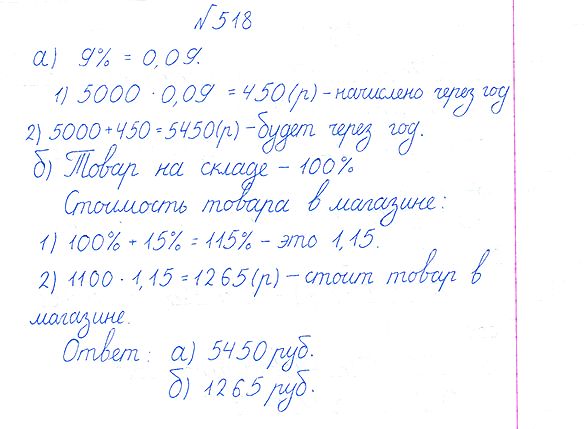 №518
а) 9% = 0,09.
1) 5000 · 0,09 = 450(р) – начислено через год
2) 5000 + 450 = 5450(р) – будет через год.
б) Товар на складе – 100%
Стоимость товара в магазине:
1) 100% + 15% = 115% – это 1,15.
2) 1100 · 1,15 = 1265(р) – стоит товар в
магазине.
Ответ: а) 5450 руб.
б) 1265 руб.